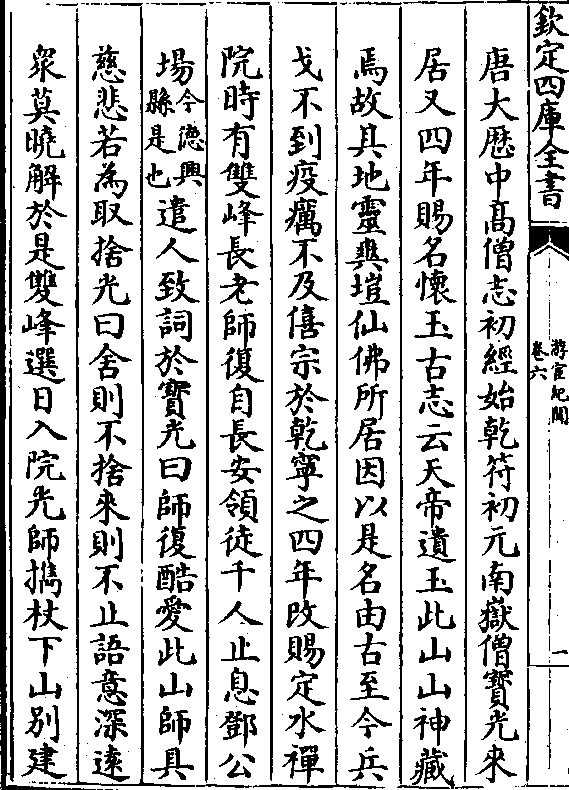 欽定四庫全書
游宦紀聞
卷六
一
唐大厯中髙僧志初經始乾符初元南嶽僧寳光來
居又四年賜名懷玉古志云天帝遺玉此山山神藏
焉故其地靈異塏仙佛所居因以是名由古至今兵
戈不到疫癘不及僖宗於乾寧之四年改賜定水禪
院時有雙峰長老師復自長安領徒千人止息鄧公
場今德興縣是也遣人致詞於寳光曰師復酷愛此山師具
慈悲若為取捨光曰舍則不捨來則不止語意深逺
衆莫曉解於是雙峰選日入院光師擕杖下山别建